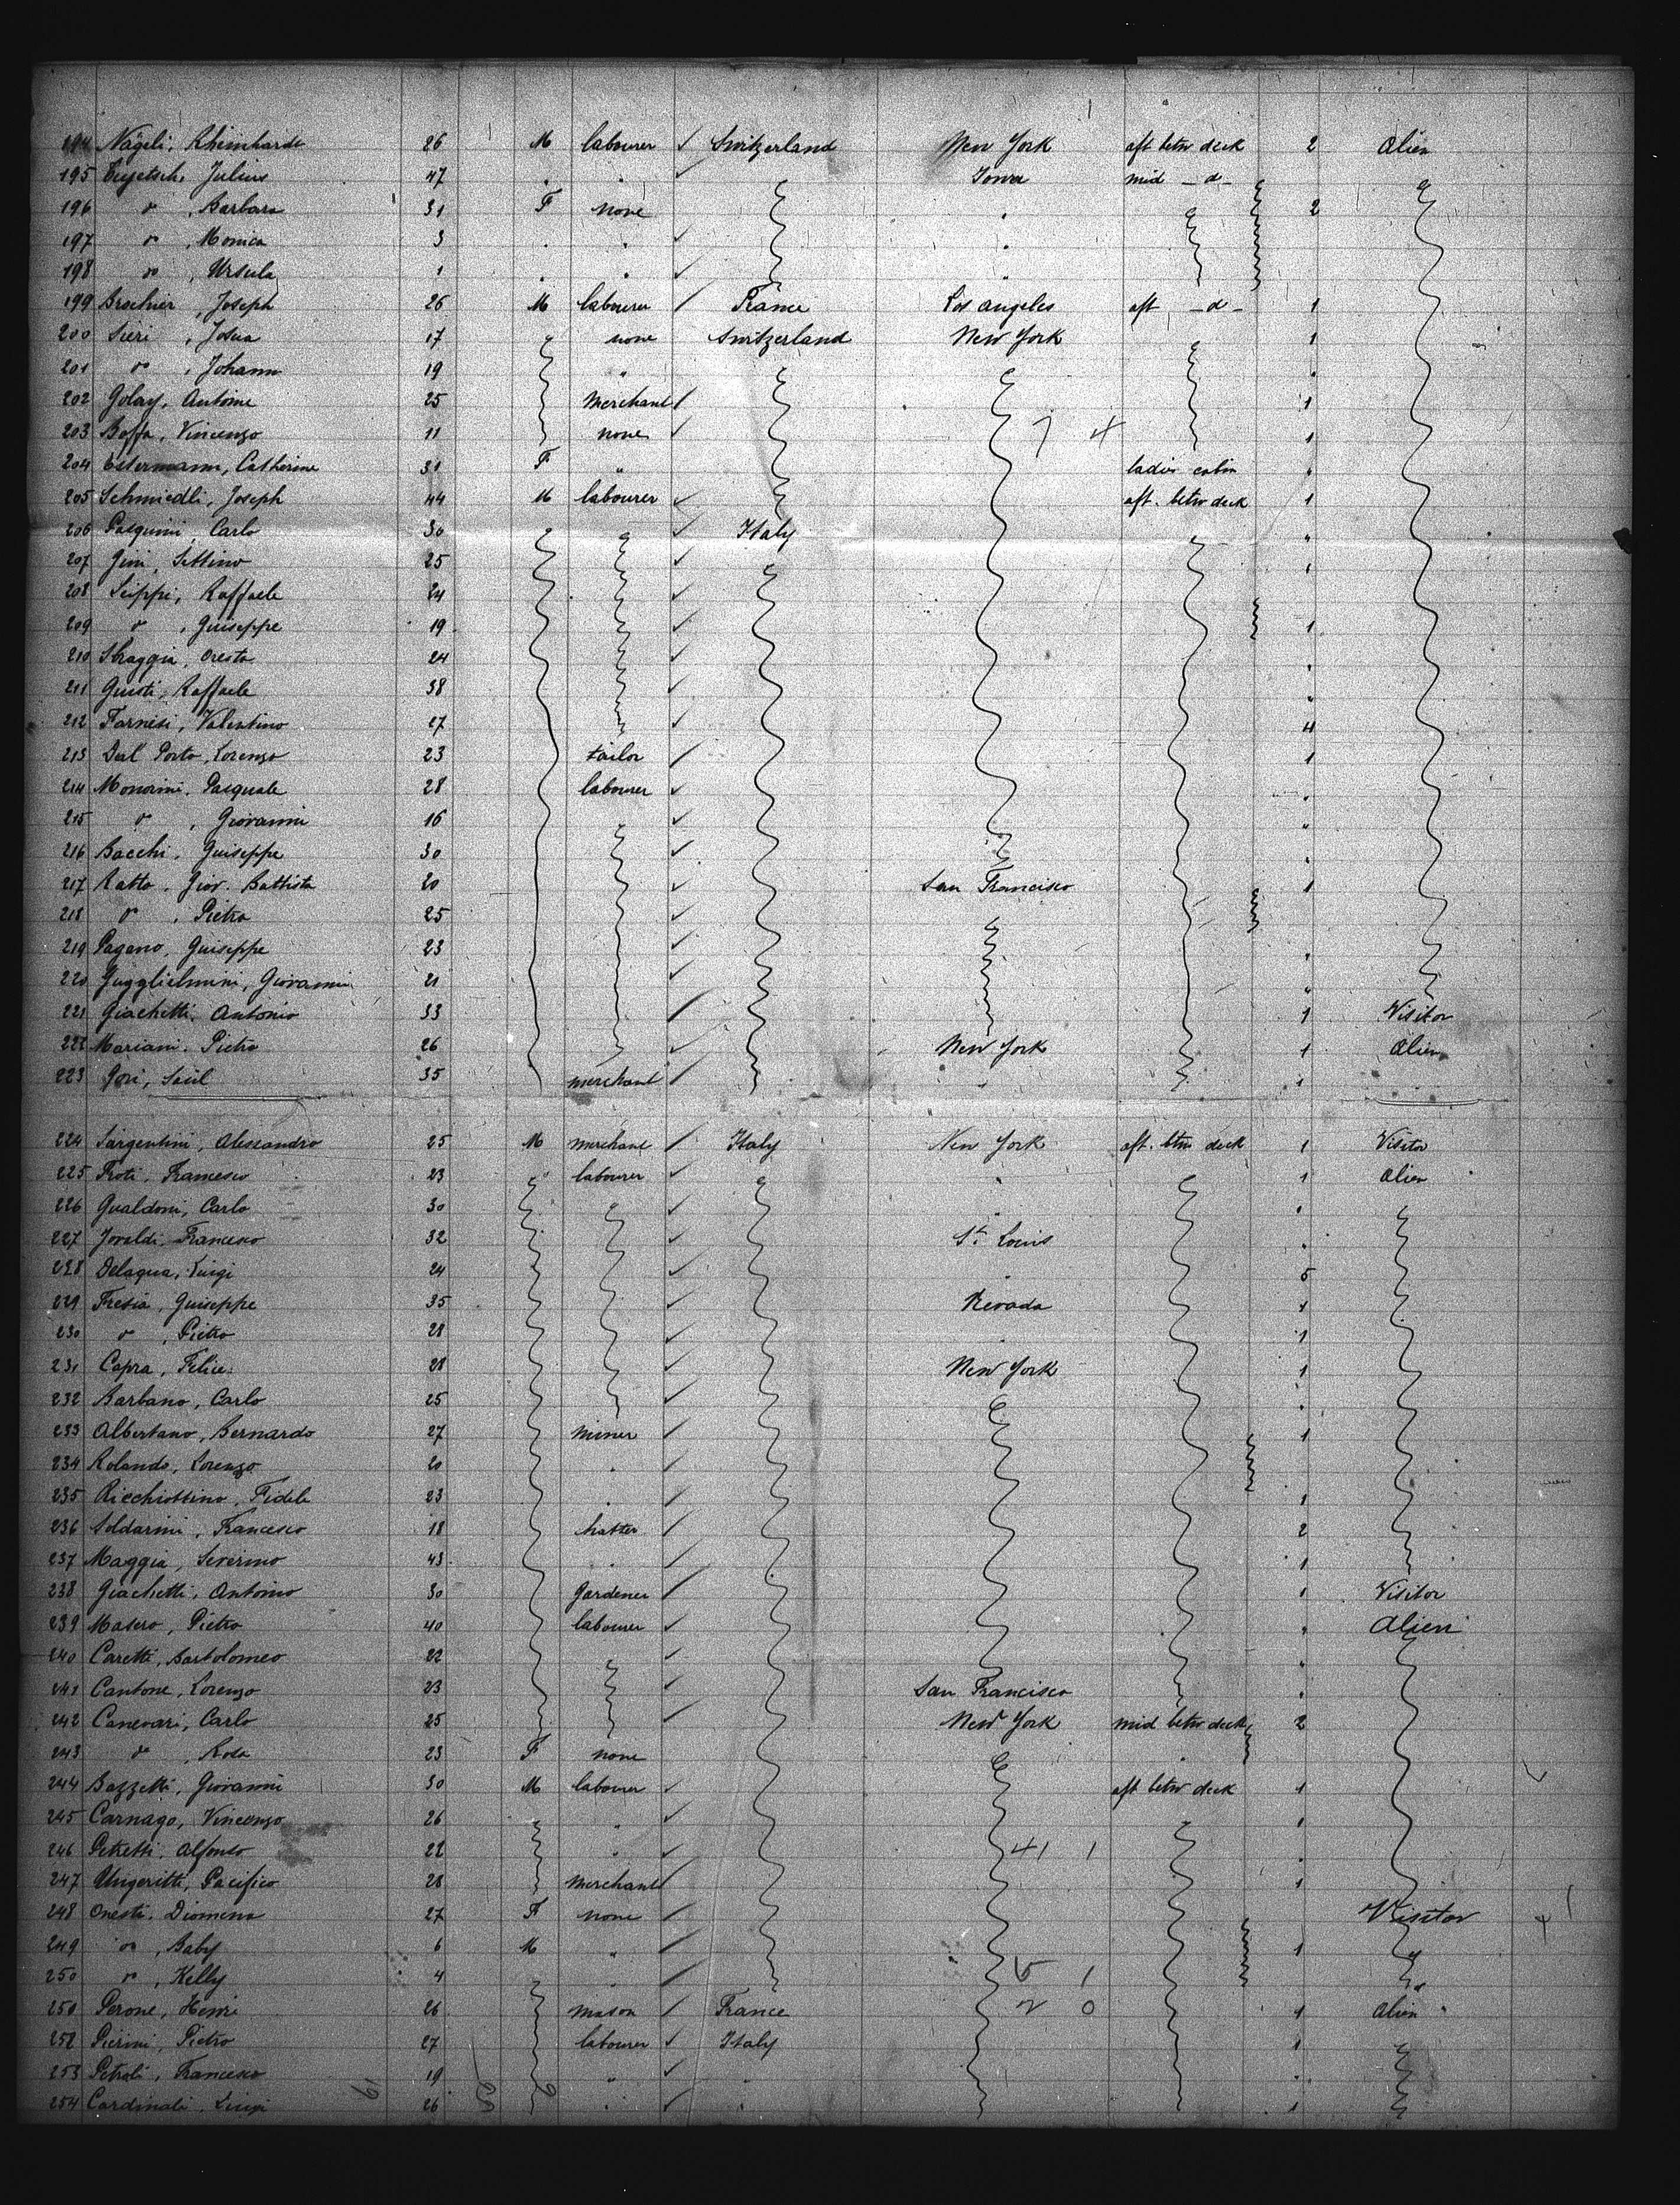 194 Nägeli, Rheinhardt 26 M labourer Switzerland New York aft betw deck 2 Alien
195 Julius 47 " " Iowa mid - d -
196 do , Barbara 31 F none " 2
197 do , Monica 3 " " "
198 do , Ursula 1 " " "
199 Joseph 26 M labourer France Los angeles aft - d - 1
200 Sieri , Josua 17 none Switzerland New York 1
201 do , Johann 19 " "
202 Golay, Antoine 25 Merchant 1
203 Boffa, Vincenzo 11 none 7 4 1
204 Estermann, Catherine 31 F " ladies cabin "
205 Schmiedli, Joseph 44 M labourer aft. betw deck 1
206 Pasquini, Carlo 30 Italy "
207 Jini, Settimo 25 1
208 Seippi, Raffaele 24
209 do , Guiseppe 19 1
210 Sbraggia, Oresto 24 "
211 Giusti, Raffaele 38 "
212 Farnesi, Valentino 27 4
213 Dal Porto, Lorenzo 23 tailor 1
214 Pasquale 28 labourer "
215 do , Giovanni 16 "
216 Bacchi, Guiseppe 30 "
217 Ratto, Giov. Battista 20 San Francisco 1
218 do , Pietro 25
219 Pagano, Guiseppe 23 "
220 Gugglielmini, Giovanni 21 "
221 Giachetti, Antonio 33 1 Visitor
222 Mariani, Pietro 26 New York 1 Alien
223 Gori, Saul 35 merchant " 1
224 Sargentini, Alessandro 25 M merchant Italy New York aft. betw deck 1 Visitor
225 Froti, Francesco 23 " labourer " 1 Alien
226 Gualdoni, Carlo 30 " "
227 Joraldi, Francesco 32 St. Louis "
228 Delaqua, Luigi 24 " 5
229 Fresia, Guiseppe 35 Nevada 1
230 do , Pietro 28 " 1
231 Capra, Felice 28 New York 1
232 Barbano, Carlo 25 "
233 Albertano, Bernardo 27 miner 1
234 Rolando, Lorenzo 20 "
235 Ricchiottino, Fidele 23 " 1
236 Soldarini, Francesco 18 hatter 2
237 Maggia, Severino 43 " 1
238 Giachetti, Antonio 30 gardener 1 Visitor
239 Masero, Pietro 40 labourer " Alien
240 Caretti, Bartolomeo 22 "
241 Cantone, Lorenzo 23 San Francisco "
242 Canevari, Carlo 25 New York mid betw deck 2
243 do , Rosa 23 F none "
244 Bazzetti, Giovanni 30 M labourer aft betw deck 1
245 Carnago, Vincenzo 26 " 1
246 Petretti, Alfonso 22 " 41 1 "
247 Ungeritti, Pacifico 28 merchant 1
248 Onesti, Diomena 27 F none Visitor
249 do , Baby 6 M " 1 "
250 do , Kelly 4 " "
250 Perone, Henri 26 mason France 1 Alien
252 Pierini, Pietro 27 labourer Italy 1
253 Petroli, Francesco 19 " " "
254 Cardinali, Luigi 26 " " 1